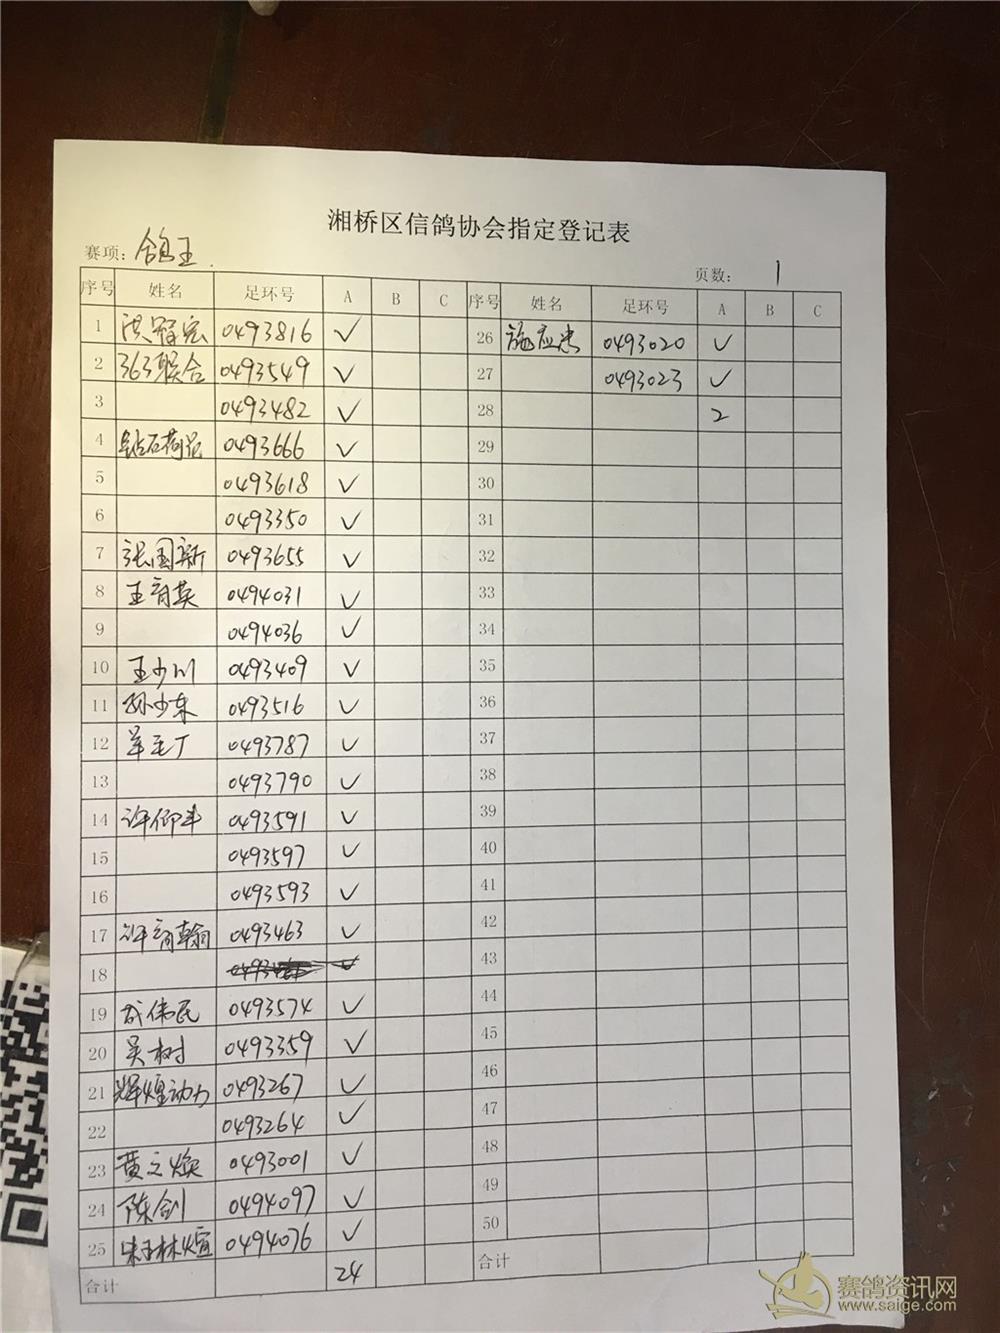 湘桥区信鸽协会指定登记表
赛项: 鸽王
页数: 1
序号 姓名 足环号 A B C 序号 姓名 足环号 A B C
1 洪冠宏 0493816 ✓ 26 施应忠 0493020 ✓
2 363联合 0493549 ✓ 27 0493023 ✓
3 0493482 ✓ 28 2
4 钻石荷兰 0493666 ✓ 29
5 0493618 ✓ 30
6 0493350 ✓ 31
7 张国新 0493655 ✓ 32
8 王育英 0494031 ✓ 33
9 0494036 ✓ 34
10 王少川 0493409 ✓ 35
11 孙少东 0493516 ✓ 36
12 羊毛厂 0493787 ✓ 37
13 0493790 ✓ 38
14 许仰丰 0493591 ✓ 39
15 0493597 ✓ 40
16 0493593 ✓ 41
17 许育翰 0493463 ✓ 42
18 43
19 成伟民 0493574 ✓ 44
20 吴树 0493359 ✓ 45
21 辉煌动力 0493267 ✓ 46
22 0493264 ✓ 47
23 黄之焕 0493001 ✓ 48
24 陈剑 0494097 ✓ 49
25 林煊 0494076 ✓ 50
合计 24 合计
赛鸽资讯网
www.saige.com